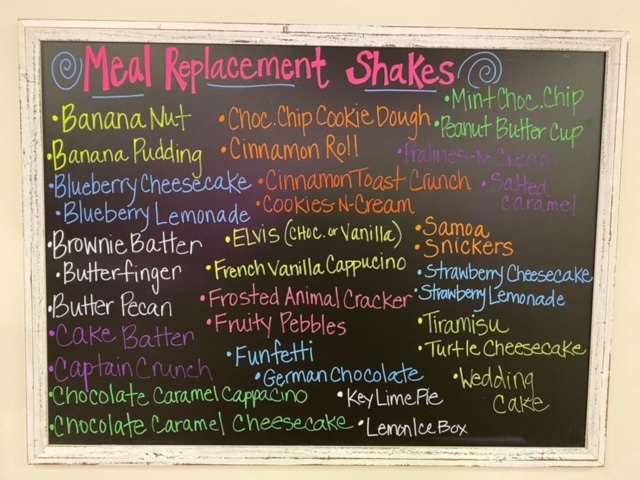 Meal Replacement Shakes
•Banana Nut
•Banana Pudding
•Blueberry Cheesecake
•Blueberry Lemonade
•Brownie Batter
•Butterfinger
•Butter Pecan
•Cake Batter
•Captain Crunch
•Chocolate Caramel Cappacino
•Chocolate Caramel Cheesecake
•Choc. Chip Cookie Dough
•Cinnamon Roll
•Cinnamon Toast Crunch
•Cookies-N-Cream
•ELVIS (CHOC. or Vanilla)
•French Vanilla Cappucino
•Frosted Animal Cracker
•Fruity Pebbles
•Funfetti
•German Chocolate
•Key Lime Pie
•Lemon Ice Box
•Mint Choc. Chip
•Peanut Butter Cup
•Pralines-N-Cream
•Salted
Caramel
•Samoa
•Snickers
•Strawberry Cheesecake
•Strawberry Lemonade
•Tiramisu
•Turtle Cheesecake
•Wedding
Cake